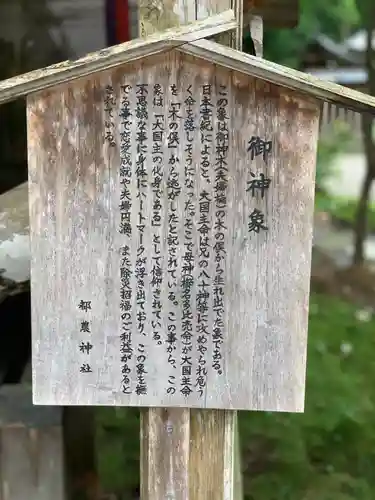 御神象
この象は御神木（夫婦楠）の木の俣から生れ出でた象である。
日本書紀によると、大国主命は兄の八十神等に攻めやられ危う
く命を落しそうになった。そこで母神（櫛名多比売命）が大国主命
を「木の俣」から逃がしたと記されている。この事から、この
象は「大国主の化身である」と信仰されている。
不思議な事に身体にハートマークが浮き出ており、この象を撫
でる事で恋愛成就や夫婦円満、また除災招福のご利益があると
されている。
都農神社